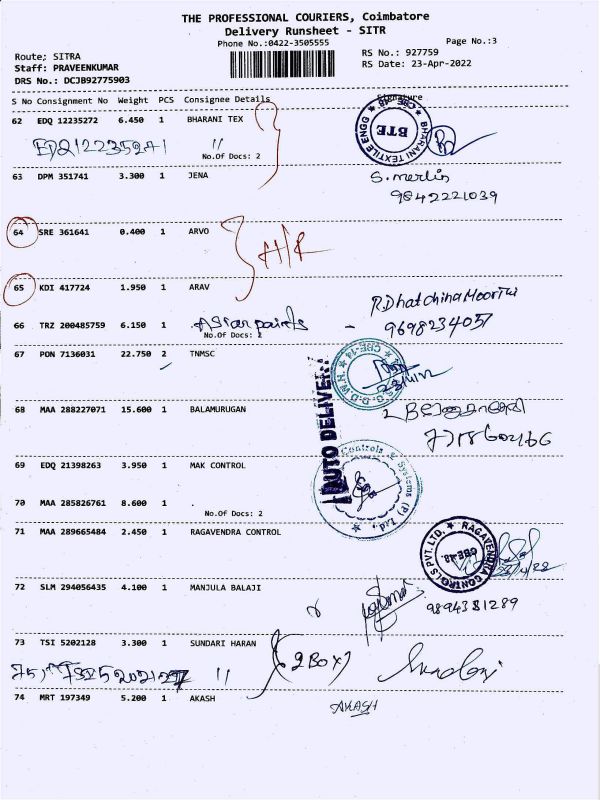 THE PROFESSIONAL COURIERS, Coimbatore
Delivery Runsheet - SITR
Phone No.:0422-3505555
Page No.:3
Route; SITRA
RS No.: 927759
Staff: PRAVEENKUMAR
RS Date: 23-Apr-2022
DRS No.: DCJB92775903
S No Consignment No Weight PCS Consignee Details Signature
62 EDQ 12235272 6.450 1 BHARANI TEX
BHARANI TEXTILE ENGG CBE-48 BTE
EDQ12235271 "
No.Of Docs: 2
63 DPM 351741 3.300 1 JENA
S. merlin
9842221039
64 SRE 361641 0.400 1 ARVO
A/R
65 KDI 417724 1.950 1 ARAV
R.Dhatchina Moorthi
66 TRZ 200485759 6.150 1 . Asian paints - 9698234057
No.Of Docs: 2
67 PON 7136031 22.750 2 TNMSC
CBE-14
AUTO DELIVERY
68 MAA 288227071 15.600 1 BALAMURUGAN
69 EDQ 21398263 3.950 1 MAK CONTROL
Controls & Systems (P) Ltd.
70 MAA 285826761 8.600 1 .
No.Of Docs: 2
71 MAA 289665484 2.450 1 RAGAVENDRA CONTROL
RAGAVENDRA CONTROLS PVT. LTD. CBE-48.
72 SLM 294056435 4.100 1 MANJULA BALAJI
9894381289
73 TSI 5202128 3.300 1 SUNDARI HARAN
(2BOX)
75) TSI 5202127 "
74 MRT 197349 5.200 1 AKASH
AKASH